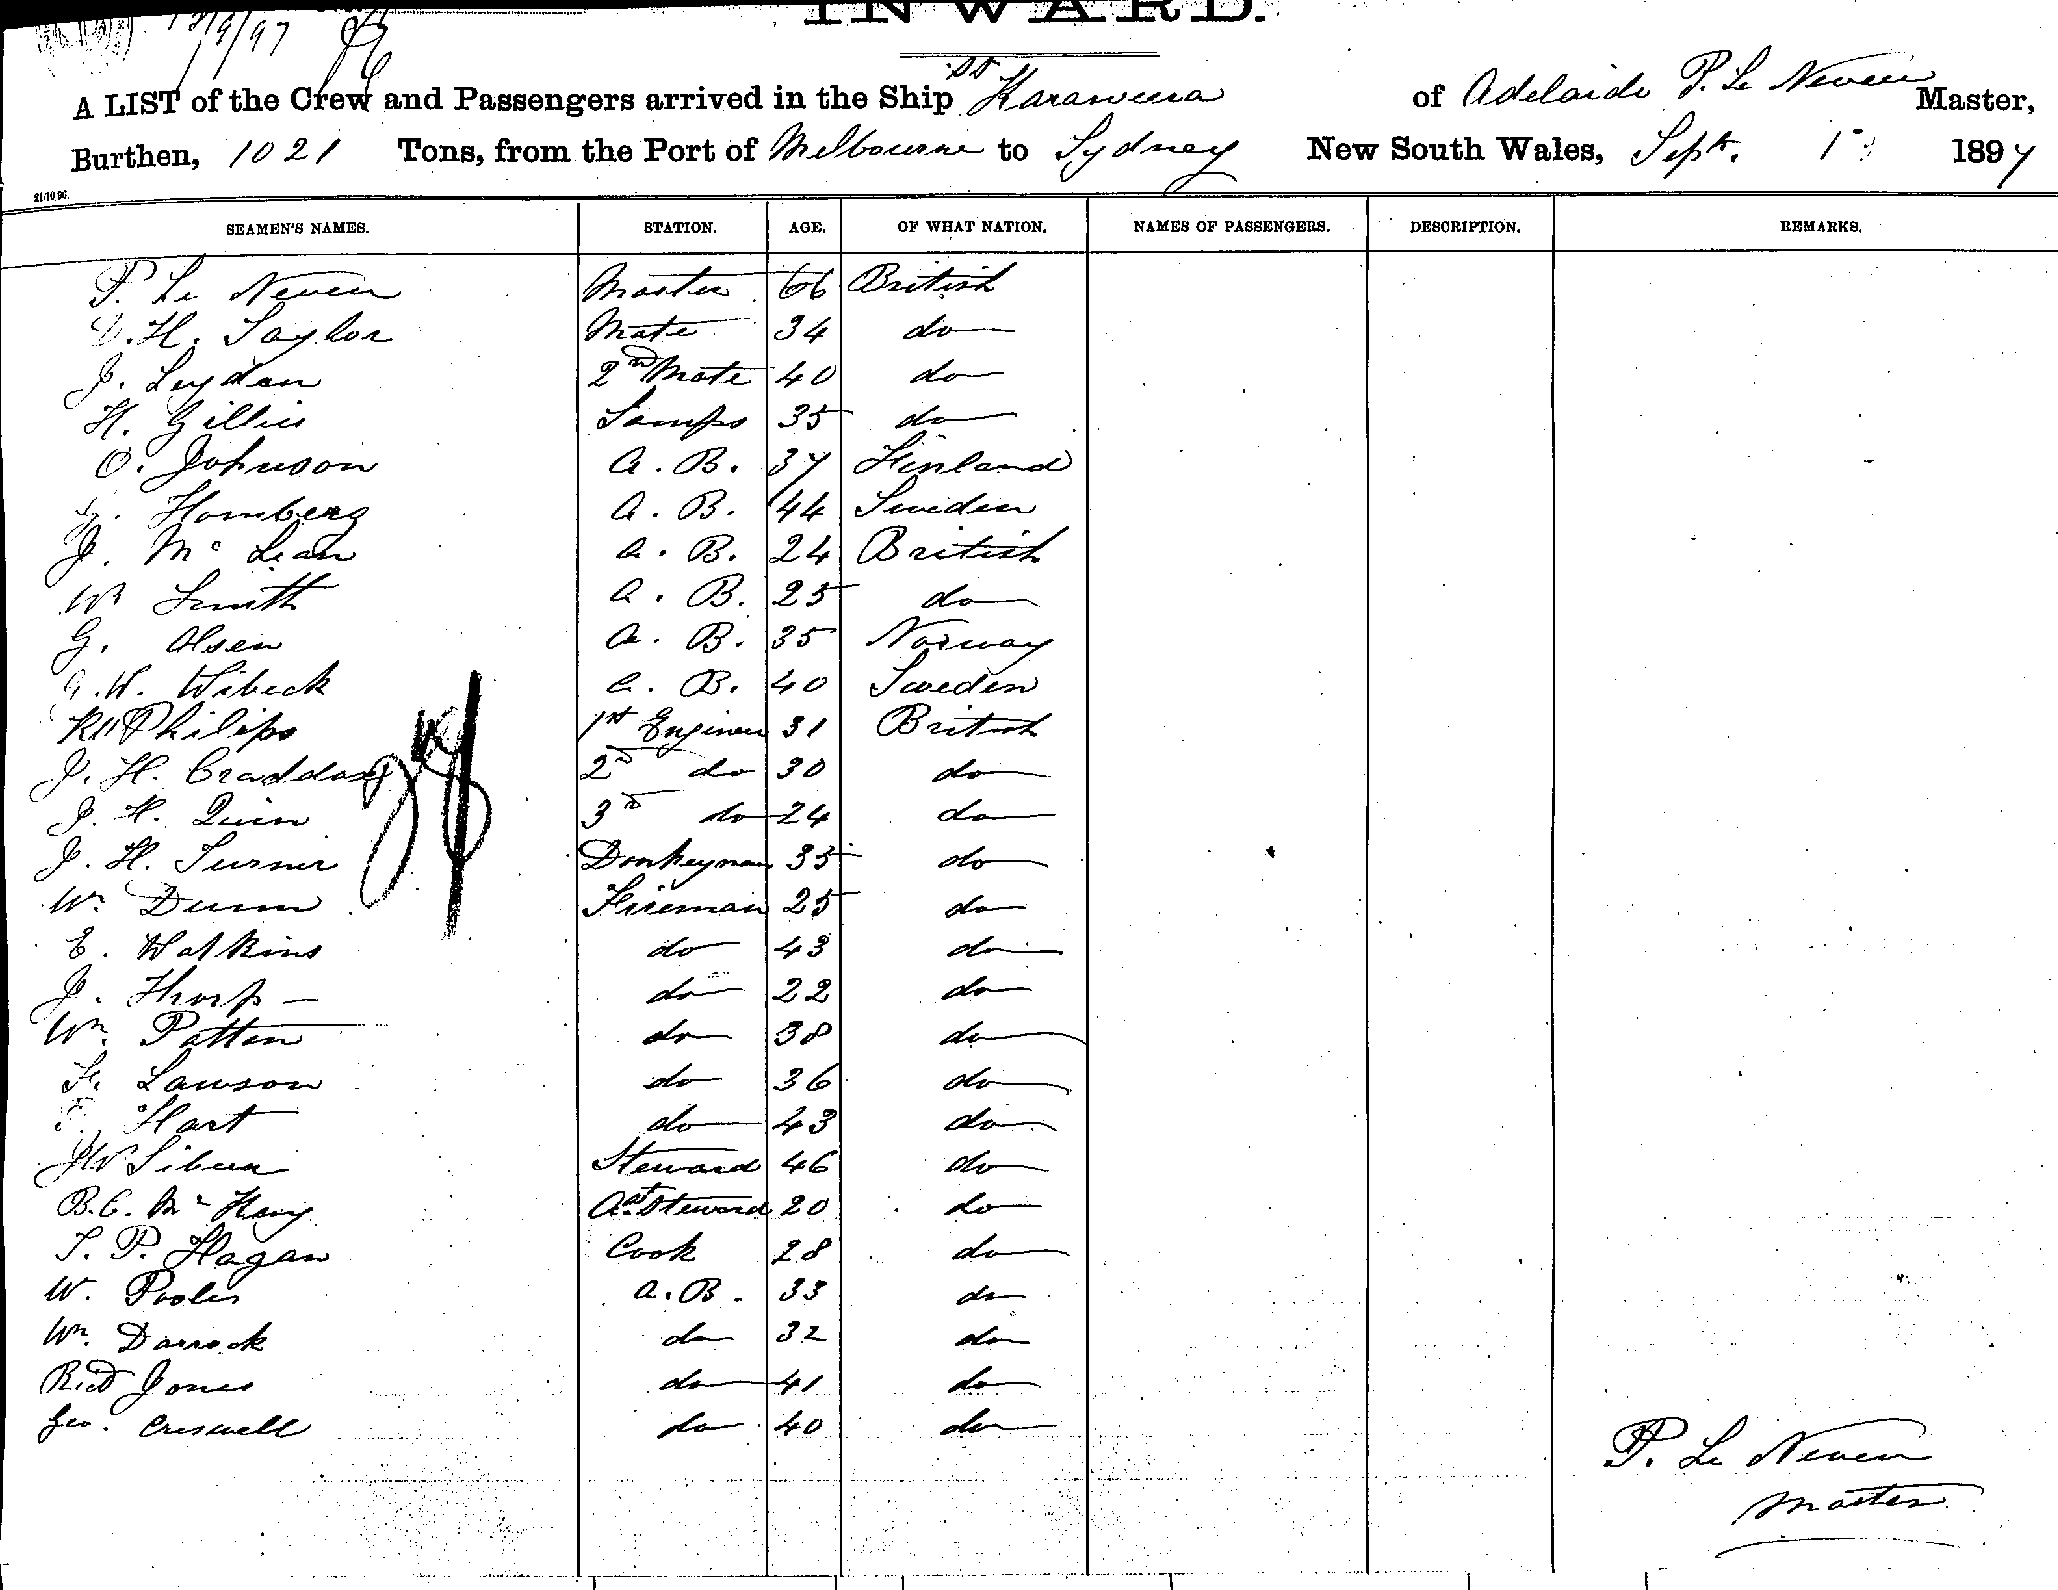 13/9/97
INWARD.
A LIST of the Crew and Passengers arrived in the Ship SS Karaweera of Adelaide P. Le Neveu Master,
Burthen, 1021 Tons, from the Port of Melbourne to Sydney New South Wales, Sept. 1897
21/10/96.
SEAMEN'S NAMES. STATION. AGE. OF WHAT NATION. NAMES OF PASSENGERS. DESCRIPTION. REMARKS.
P. Le Neveu Master 66 British
H. Taylor Mate 34 do
J. Leydan 2nd Mate 40 do
H. Gillies Lamps 35 do
O. Johnson A. B. 37 Finland
Homberg A. B. 44 Sweden
J. McLean A. B. 24 British
Wm Smith A. B. 25 do
G. Olsen A. B. 35 Norway
W. Wibeck A. B. 40 Sweden
Philips 1st Engineer 31 British
J. H. Craddock 2nd do 30 do
J. H. Quin 3rd do 24 do
J. H. Turner Donkeyman 35 do
Wm Dunn Fireman 25 do
E. Watkins do 43 do
J. Thorp do 22 do
Wm. Patten do 38 do
Lawson do 36 do
Hart do 43 do
JW Steward 46 do
B.C. Mc Ast Steward 20 do
T. P. Hagan Cook 28 do
W. Pooles A.B. 33 do
Wm. Darrock do 32 do
Ricd Jones do 41 do
Geo. Creswell do 40 do
P. Le Neveu
Master